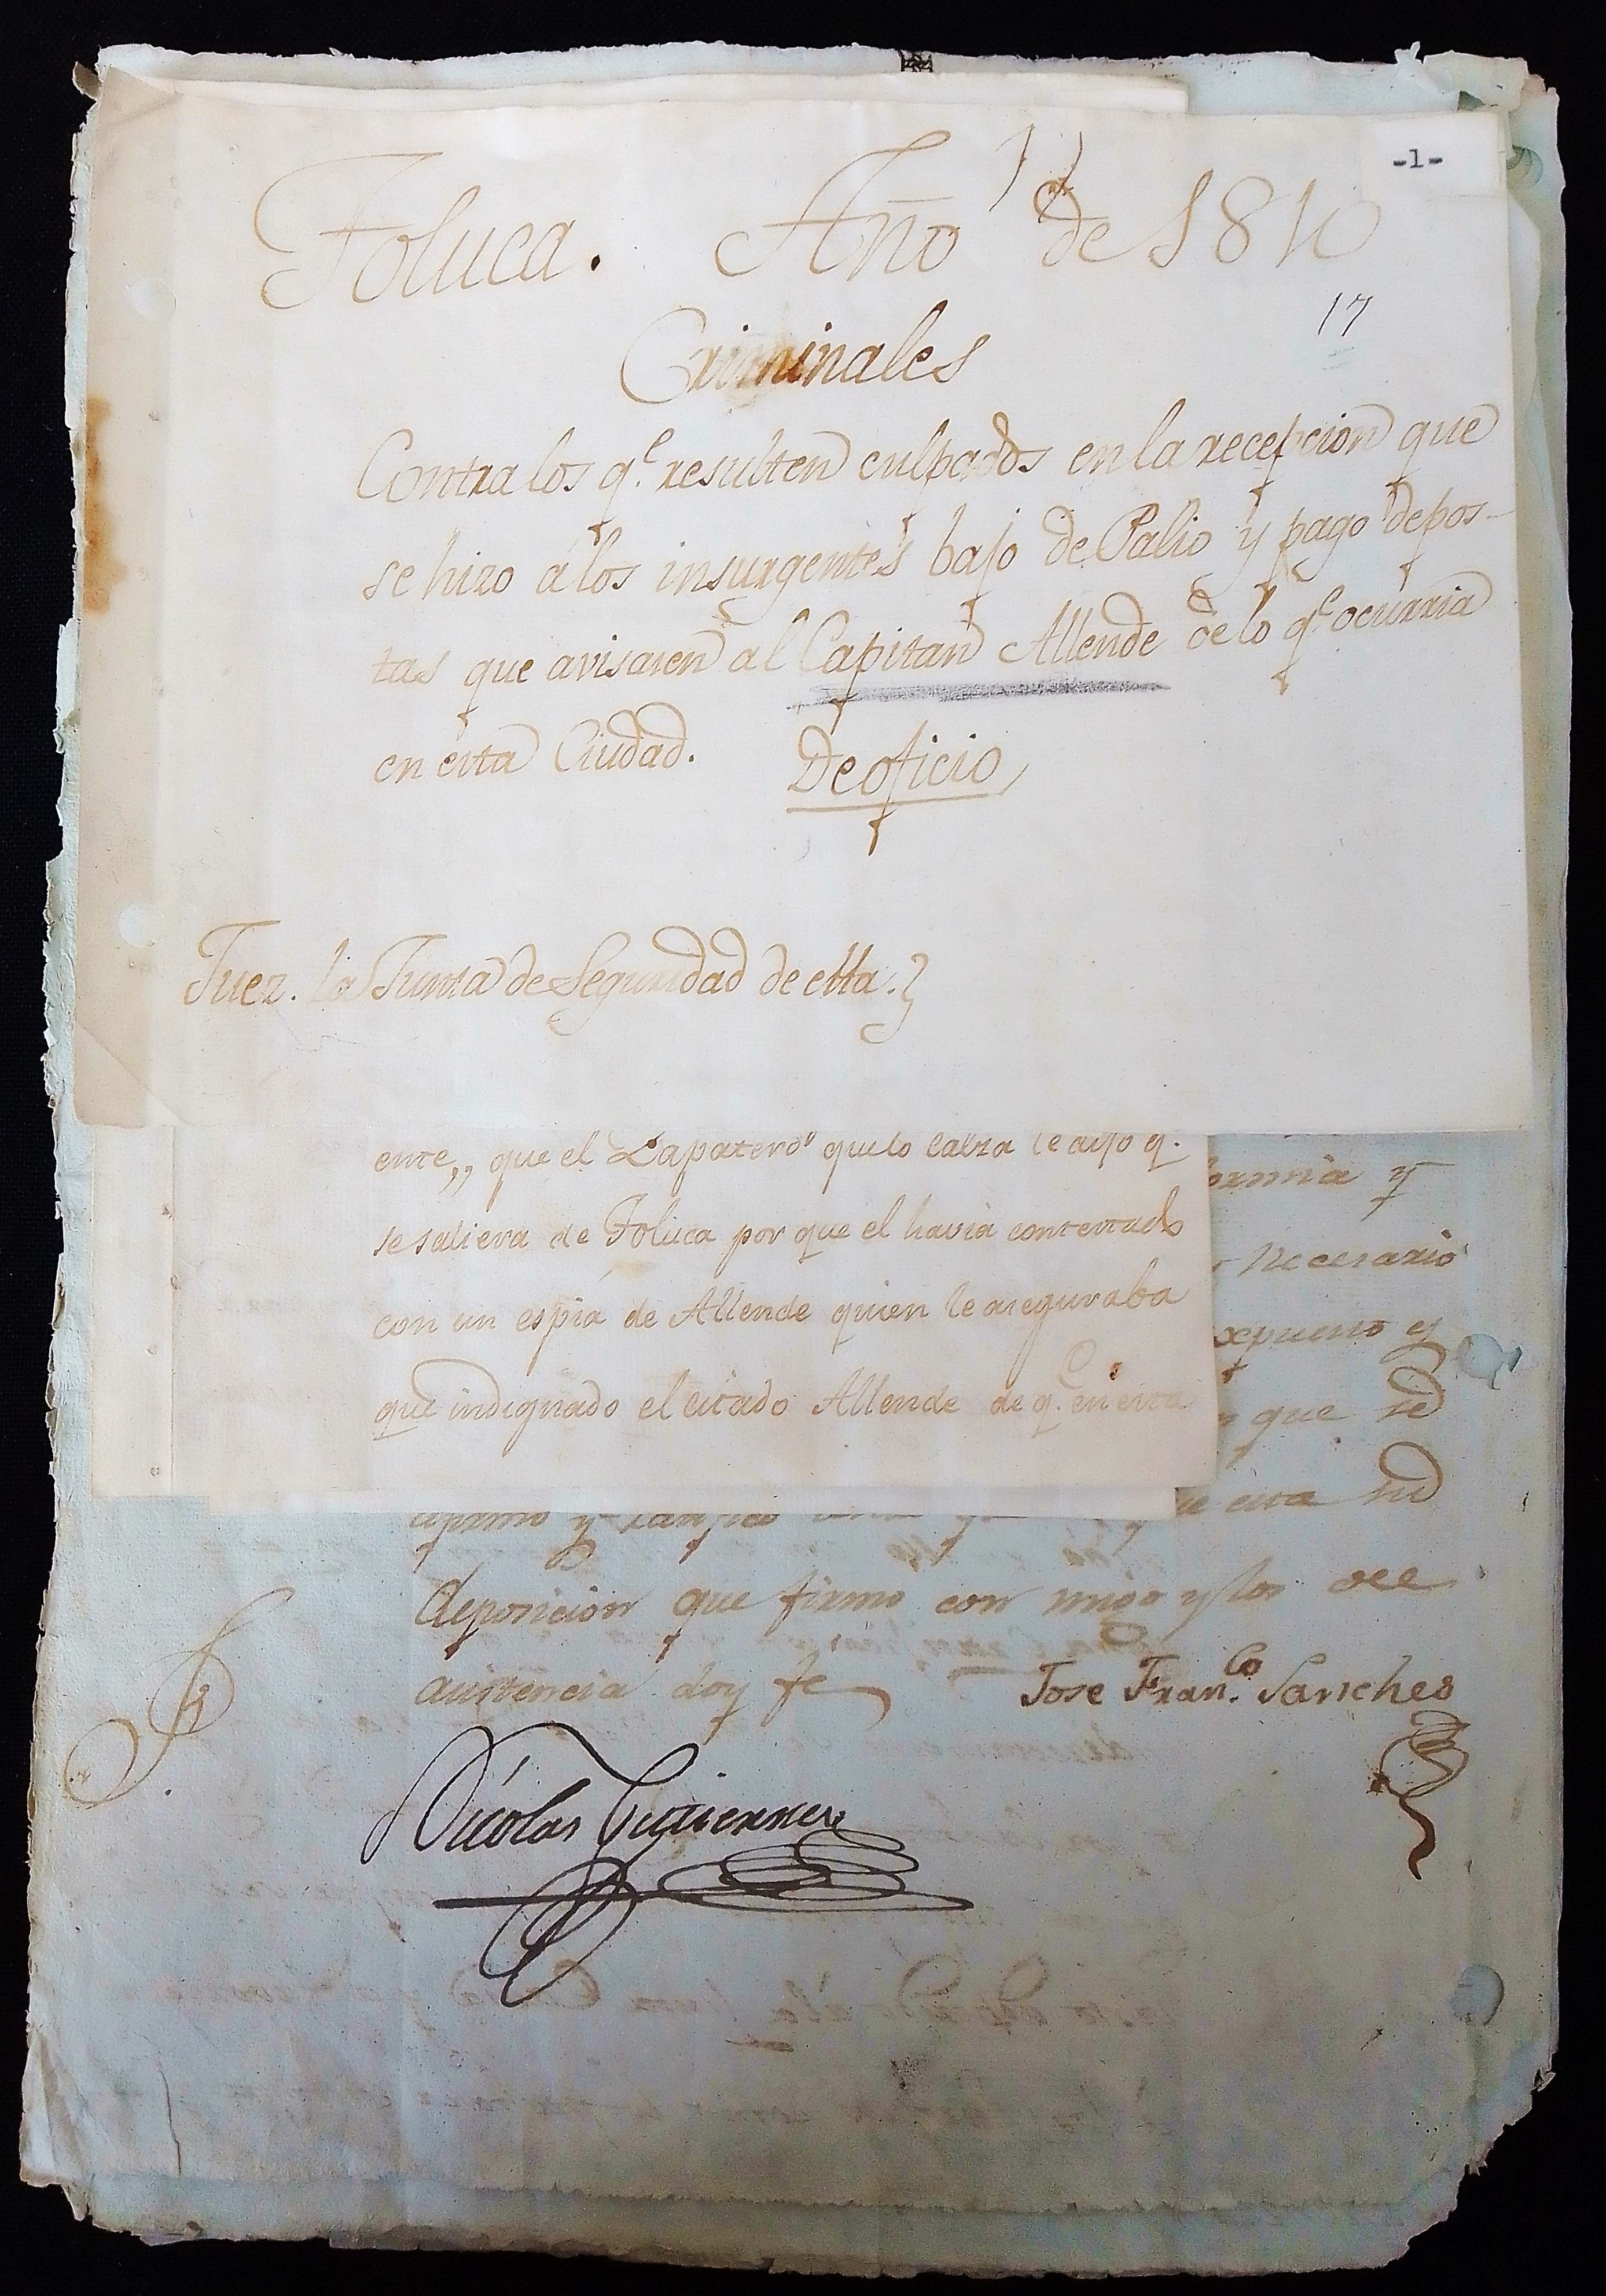 -1-
Toluca. Año de 1810
17
Criminales
Contra los q.e resulten culpados en la recepcion que
se hizo á los insurgentes bajo de Palio y pago de pos-
tas que avisasen al Capitan Allende de lo q.e ocurria
en esta Ciudad. De oficio
Juez. la Junta de Seguridad de esta.
ente,, que el Zapatero que lo calza le dijo q.
se saliera de Toluca por que el havia contextado
con un espia de Allende quien le aseguraba
que indignado el citado Allende de q. en esta
y
necesario
expuesto y
que se
afirmo y ratifico
esta su
deposicion que firmo con migo y los de
asistencia doy fe
Jose Fran.co Sanches
Nicolas Gutierrez